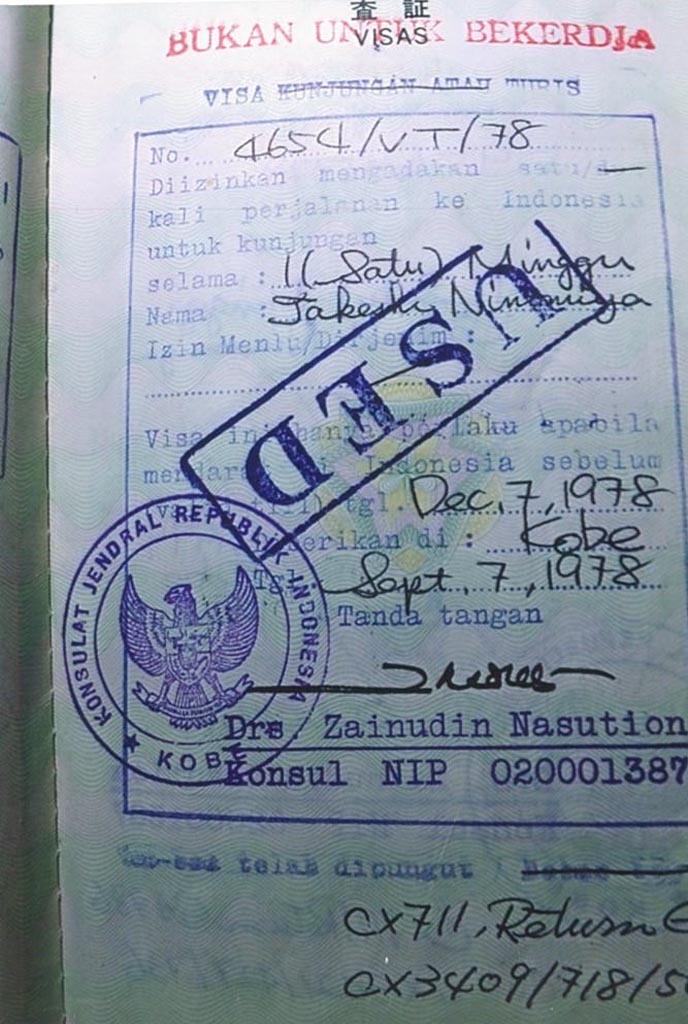 査 証
VISAS
BUKAN UNTUK BEKERDJA
VISA KUNJUNGAN ATAU TURIS
No. 4654/VT/78
Diizinkan mengadakan satu/
kali perjalanan ke Indonesia
untuk kunjungan
selama : 1 (Satu) Minggu
Nama : Takeshi Ninomiya
Izin Menlu/Dirjenim :
USED
Visa ini hanya berlaku apabila
mendarat di Indonesia sebelum
tgl. Dec. 7, 1978
erikan di : Kobe
Tgl. Sept. 7, 1978
Tanda tangan
KONSULAT JENDRAL REPUBLIK INDONESIA
★ KOBE
Drs. Zainudin Nasution
Konsul NIP 020001387
telah dipungut :
CX711, Return
CX3409/718/5